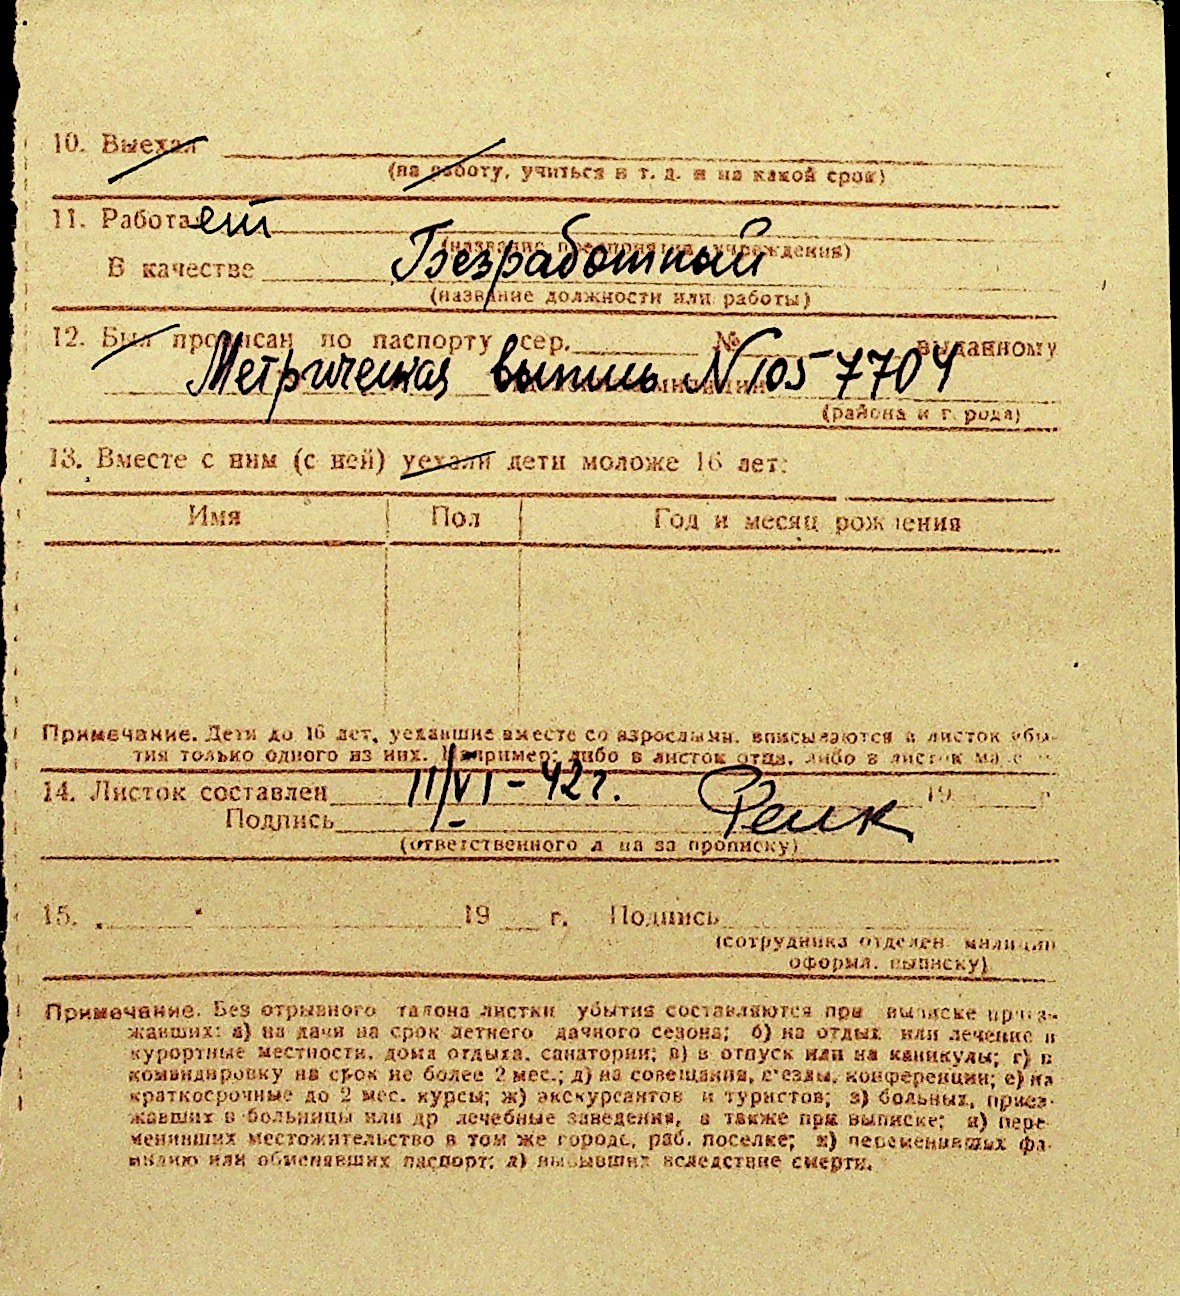 10. Выехал
(на работу, учиться и т. д. и на какой срок)
11. Работает
(название предприятия, учреждения)
В качестве Безработный
(название должности или работы)
12. Был прописан по паспорту сер. № выданному
Метрическая выпись N 1057704
(района и города)
13. Вместе с ним (с ней) уехали дети моложе 16 лет:
Имя Пол Год и месяц рождения
Примечание. Дети до 16 лет, уехавшие вместе со взрослыми, вписываются в листок убы-
тия только одного из них. Например: либо в листок отца, либо в листок
14. Листок составлен 11/VI - 42 г. 19 г.
Подпись
(ответственного л на за прописку)
15. " 19 г. Подпись
(сотрудника отделен. милиции
оформл. выписку)
Примечание. Без отрывного талона листки убытия составляются при выписке приез-
жавших: а) на дачи на срок летнего дачного сезона; б) на отдых или лечение в
курортные местности, дома отдыха, санатории; в) в отпуск или на каникулы; г) в
командировку на срок не более 2 мес.; д) на совещания, съезды, конференции; е) на
краткосрочные до 2 мес. курсы; ж) экскурсантов и туристов; з) больных, приез-
жавших в больницы или др лечебные заведения, а также при выписке; и) пере-
менивших местожительство в том же городе, раб. поселке; к) переменивших фа-
милию или обменявших паспорт; л) выбывших вследствие смерти.